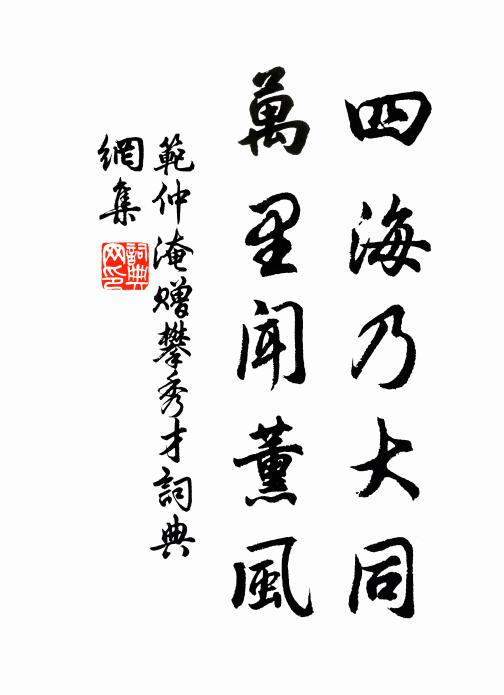 四海乃大同
萬里聞薰風
範仲淹贈攀秀才詞典
網集
詞典
網印